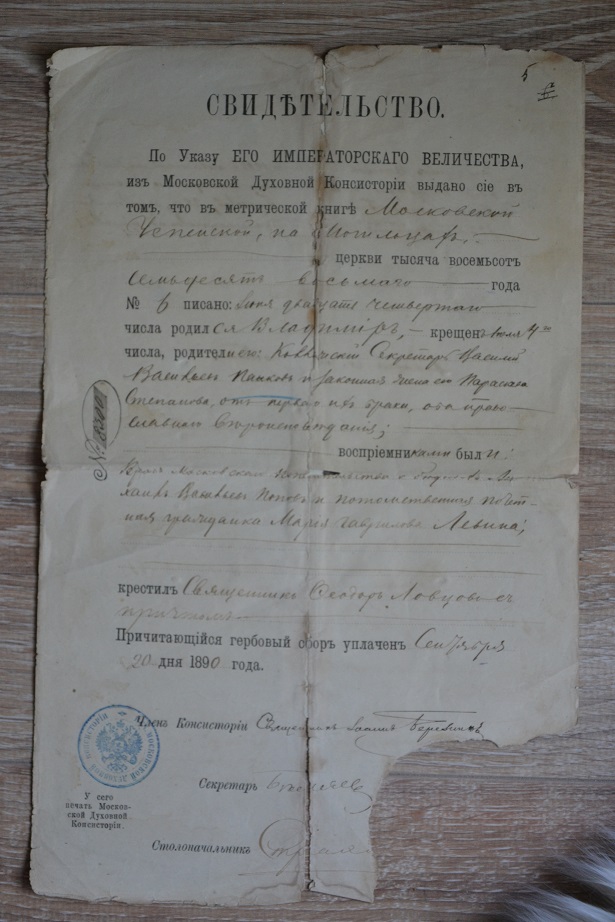 5
СВИДѢТЕЛЬСТВО.
По Указу ЕГО ИМПЕРАТОРСКАГО ВЕЛИЧЕСТВА,
изъ Московской Духовной Консисторіи выдано сіе въ
томъ, что въ метрической книгѣ Московской
Успенской, на Могильцахъ,
церкви тысяча восемьсотъ
семьдесятъ восьмаго года
№ 6 писано: двадцать четвертаго
числа родился Владиміръ, крещенъ 4го
числа, родители его: Секретарь Василій
Васильевъ и законная жена его Параскева
Степанова, отъ перваго ихъ брака, оба право-
славнаго вѣроисповѣданія;
воспріемниками были:
Московскаго о
Васильевъ Поповъ и потомственная почет-
ная гражданка Марія Гаврилова Левина;
крестилъ Священникъ Ѳеодоръ Ловцовъ съ
причтомъ
Причитающійся гербовый сборъ уплаченъ Сентября
20 дня 1890 года.
Членъ Консисторіи Священникъ Іоаннъ
Секретарь
У сего
печать Москов-
ской Духовной
Консисторіи.
Столоначальникъ